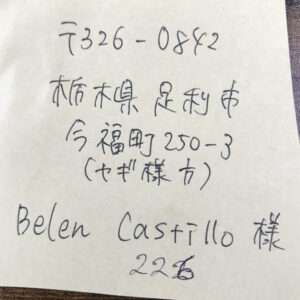 〒326-0842
栃木県足利市
今福町250-3
(ヤギ様方)
Belen Castillo 様